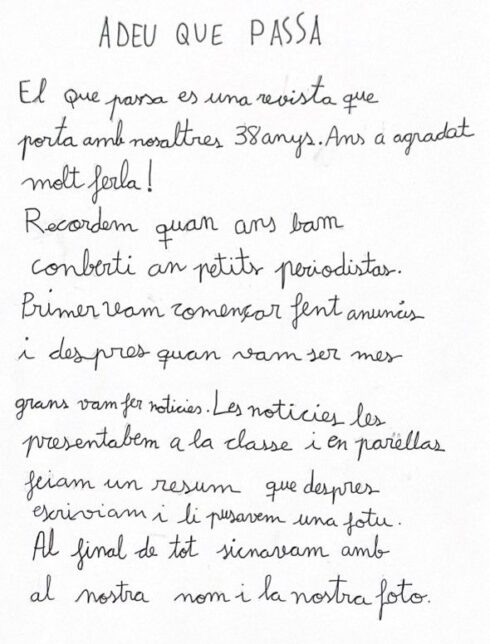 ADEU QUE PASSA
El que passa es una revista que
porta amb nosaltres 38 anys. Ans a agradat
molt ferla!
Recordem quan ans bam
conberti an petits periodistas.
Primer vam començar fent anuncis
i despres quan vam ser mes
grans vam fer noticies. Les noticies les
presentabem a la classe i en parellas
feiam un resum que despres
escriviam i li pusavem una fotu.
Al final de tot sicnavam amb
al nostra nom i la nostra foto.